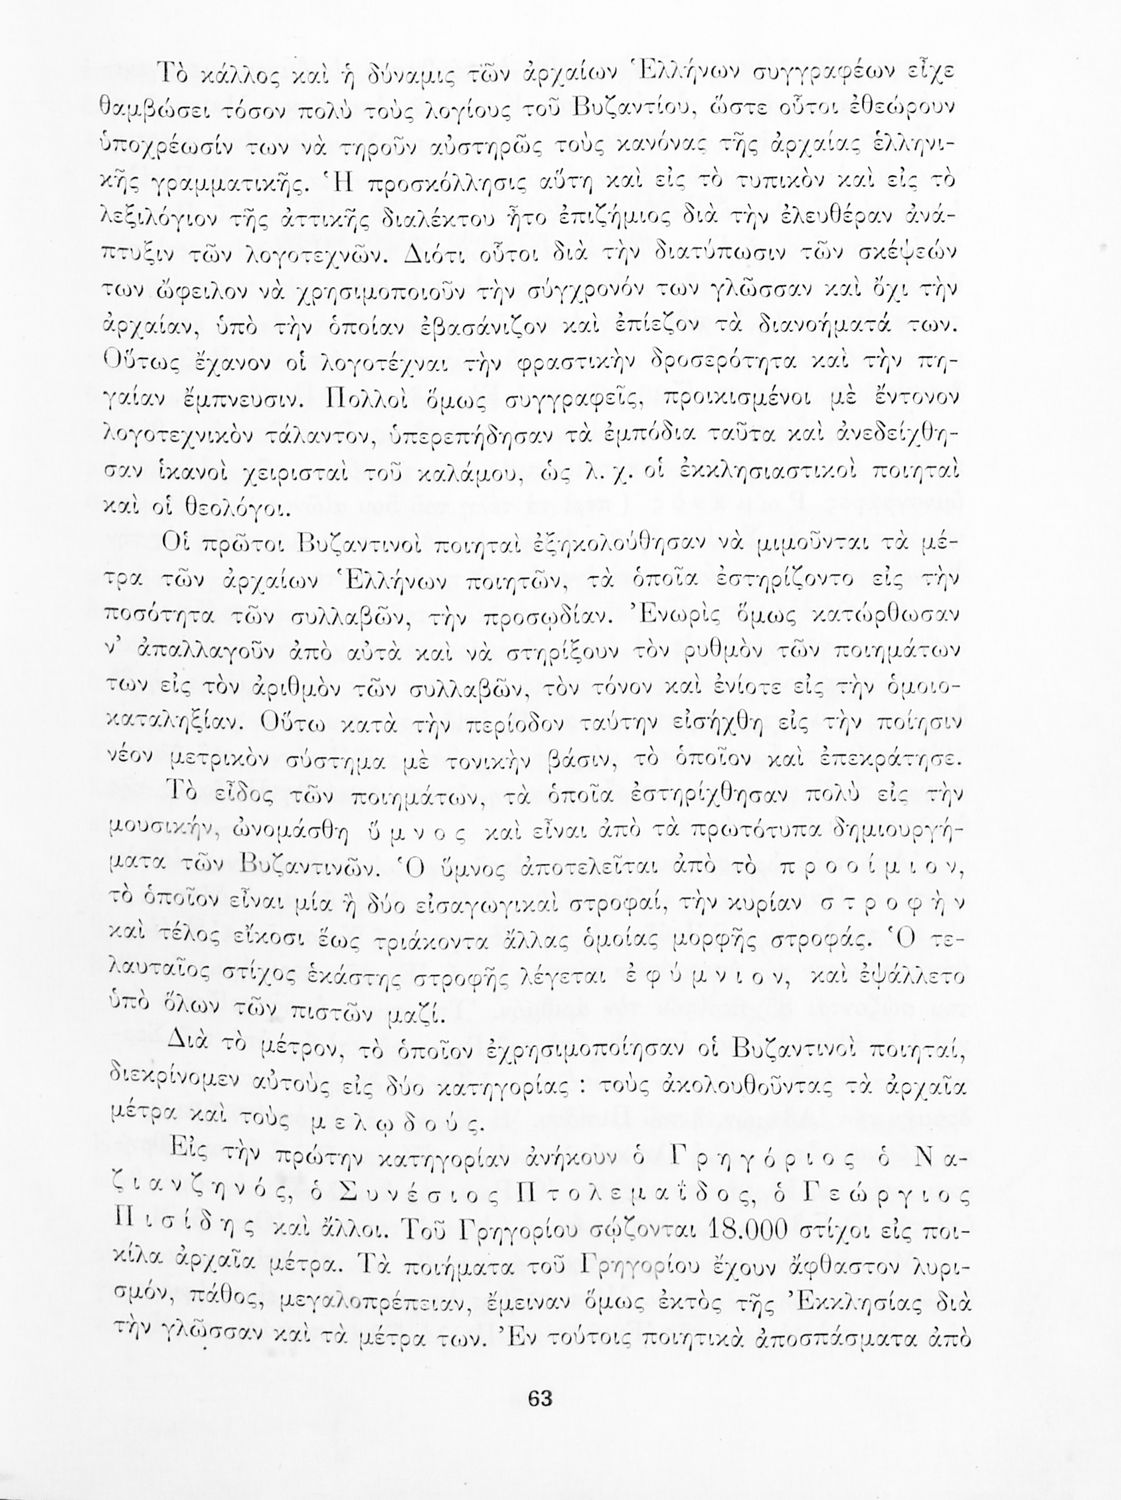 Τὸ κάλλος καὶ ἡ δύναμις τῶν ἀρχαίων Ἑλλήνων συγγραφέων εἶχε
θαμβώσει τόσον πολὺ τοὺς λογίους τοῦ Βυζαντίου, ὥστε οὗτοι ἐθεώρουν
ὑποχρέωσίν των νὰ τηροῦν αὐστηρῶς τοὺς κανόνας τῆς ἀρχαίας ἑλληνι-
κῆς γραμματικῆς. Ἡ προσκόλλησις αὕτη καὶ εἰς τὸ τυπικὸν καὶ εἰς τὸ
λεξιλόγιον τῆς ἀττικῆς διαλέκτου ἦτο ἐπιζήμιος διὰ τὴν ἐλευθέραν ἀνά-
πτυξιν τῶν λογοτεχνῶν. Διότι οὗτοι διὰ τὴν διατύπωσιν τῶν σκέψεών
των ὤφειλον νὰ χρησιμοποιοῦν τὴν σύγχρονόν των γλῶσσαν καὶ ὄχι τὴν
ἀρχαίαν, ὑπὸ τὴν ὁποίαν ἐβασάνιζον καὶ ἐπίεζον τὰ διανοήματά των.
Οὕτως ἔχανον οἱ λογοτέχναι τὴν φραστικὴν δροσερότητα καὶ τὴν πη-
γαίαν ἔμπνευσιν. Πολλοὶ ὅμως συγγραφεῖς, προικισμένοι μὲ ἔντονον
λογοτεχνικὸν τάλαντον, ὑπερεπήδησαν τὰ ἐμπόδια ταῦτα καὶ ἀνεδείχθη-
σαν ἱκανοὶ χειρισταὶ τοῦ καλάμου, ὡς λ. χ. οἱ ἐκκλησιαστικοὶ ποιηταὶ
καὶ οἱ θεολόγοι.
Οἱ πρῶτοι Βυζαντινοὶ ποιηταὶ ἐξηκολούθησαν νὰ μιμοῦνται τὰ μέ-
τρα τῶν ἀρχαίων Ἑλλήνων ποιητῶν, τὰ ὁποῖα ἐστηρίζοντο εἰς τὴν
ποσότητα τῶν συλλαβῶν, τὴν προσῳδίαν. Ἐνωρὶς ὅμως κατώρθωσαν
ν' ἀπαλλαγοῦν ἀπὸ αὐτὰ καὶ νὰ στηρίξουν τὸν ρυθμὸν τῶν ποιημάτων
των εἰς τὸν ἀριθμὸν τῶν συλλαβῶν, τὸν τόνον καὶ ἐνίοτε εἰς τὴν ὁμοιο-
καταληξίαν. Οὕτω κατὰ τὴν περίοδον ταύτην εἰσήχθη εἰς τὴν ποίησιν
νέον μετρικὸν σύστημα μὲ τονικὴν βάσιν, τὸ ὁποῖον καὶ ἐπεκράτησε.
Τὸ εἶδος τῶν ποιημάτων, τὰ ὁποῖα ἐστηρίχθησαν πολὺ εἰς τὴν
μουσικήν, ὠνομάσθη ὕμνος καὶ εἶναι ἀπὸ τὰ πρωτότυπα δημιουργή-
ματα τῶν Βυζαντινῶν. Ὁ ὕμνος ἀποτελεῖται ἀπὸ τὸ προοίμιον,
τὸ ὁποῖον εἶναι μία ἢ δύο εἰσαγωγικαὶ στροφαί, τὴν κυρίαν στροφὴν
καὶ τέλος εἴκοσι ἕως τριάκοντα ἄλλας ὁμοίας μορφῆς στροφάς. Ὁ τε-
λαυταῖος στίχος ἑκάστης στροφῆς λέγεται ἐφύμνιον, καὶ ἐψάλλετο
ὑπὸ ὅλων τῶν πιστῶν μαζί.
Διὰ τὸ μέτρον, τὸ ὁποῖον ἐχρησιμοποίησαν οἱ Βυζαντινοὶ ποιηταί,
διεκρίνομεν αὐτοὺς εἰς δύο κατηγορίας : τοὺς ἀκολουθοῦντας τὰ ἀρχαῖα
μέτρα καὶ τοὺς μελῳδούς.
Εἰς τὴν πρώτην κατηγορίαν ἀνήκουν ὁ Γρηγόριος ὁ Να-
ζιανζηνός, ὁ Συνέσιος Πτολεμαΐδος, ὁ Γεώργιος
Πισίδης καὶ ἄλλοι. Τοῦ Γρηγορίου σῴζονται 18.000 στίχοι εἰς ποι-
κίλα ἀρχαῖα μέτρα. Τὰ ποιήματα τοῦ Γρηγορίου ἔχουν ἄφθαστον λυρι-
σμόν, πάθος, μεγαλοπρέπειαν, ἔμειναν ὅμως ἐκτὸς τῆς Ἐκκλησίας διὰ
τὴν γλῶσσαν καὶ τὰ μέτρα των. Ἐν τούτοις ποιητικὰ ἀποσπάσματα ἀπὸ
63